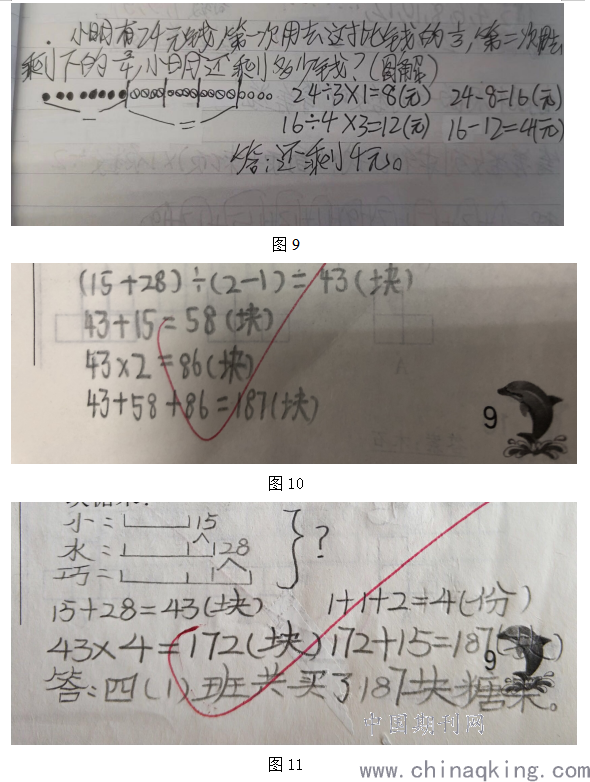 小明有24元钱,第一次用去这些钱的1/3,第二次用去
剩下的3/4,小明还剩多少钱?(图解)
24÷3×1=8(元) 24-8=16(元)
一 二
16÷4×3=12(元) 16-12=4(元)
答:还剩4元。
图9
(15+28)÷(2-1)=43(块)
43+15=58(块)
43×2=86(块)
43+58+86=187(块)
9
图10
小: 15
水: 28
巧:
} ?
15+28=43(块) 1+1+2=4(份)
43×4=172(块) 172+15=187
9
答:四(1)班共买了187块糖果。
中国期刊网
图11
www.chinaqking.com